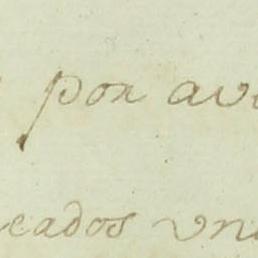 por avi
cados vna